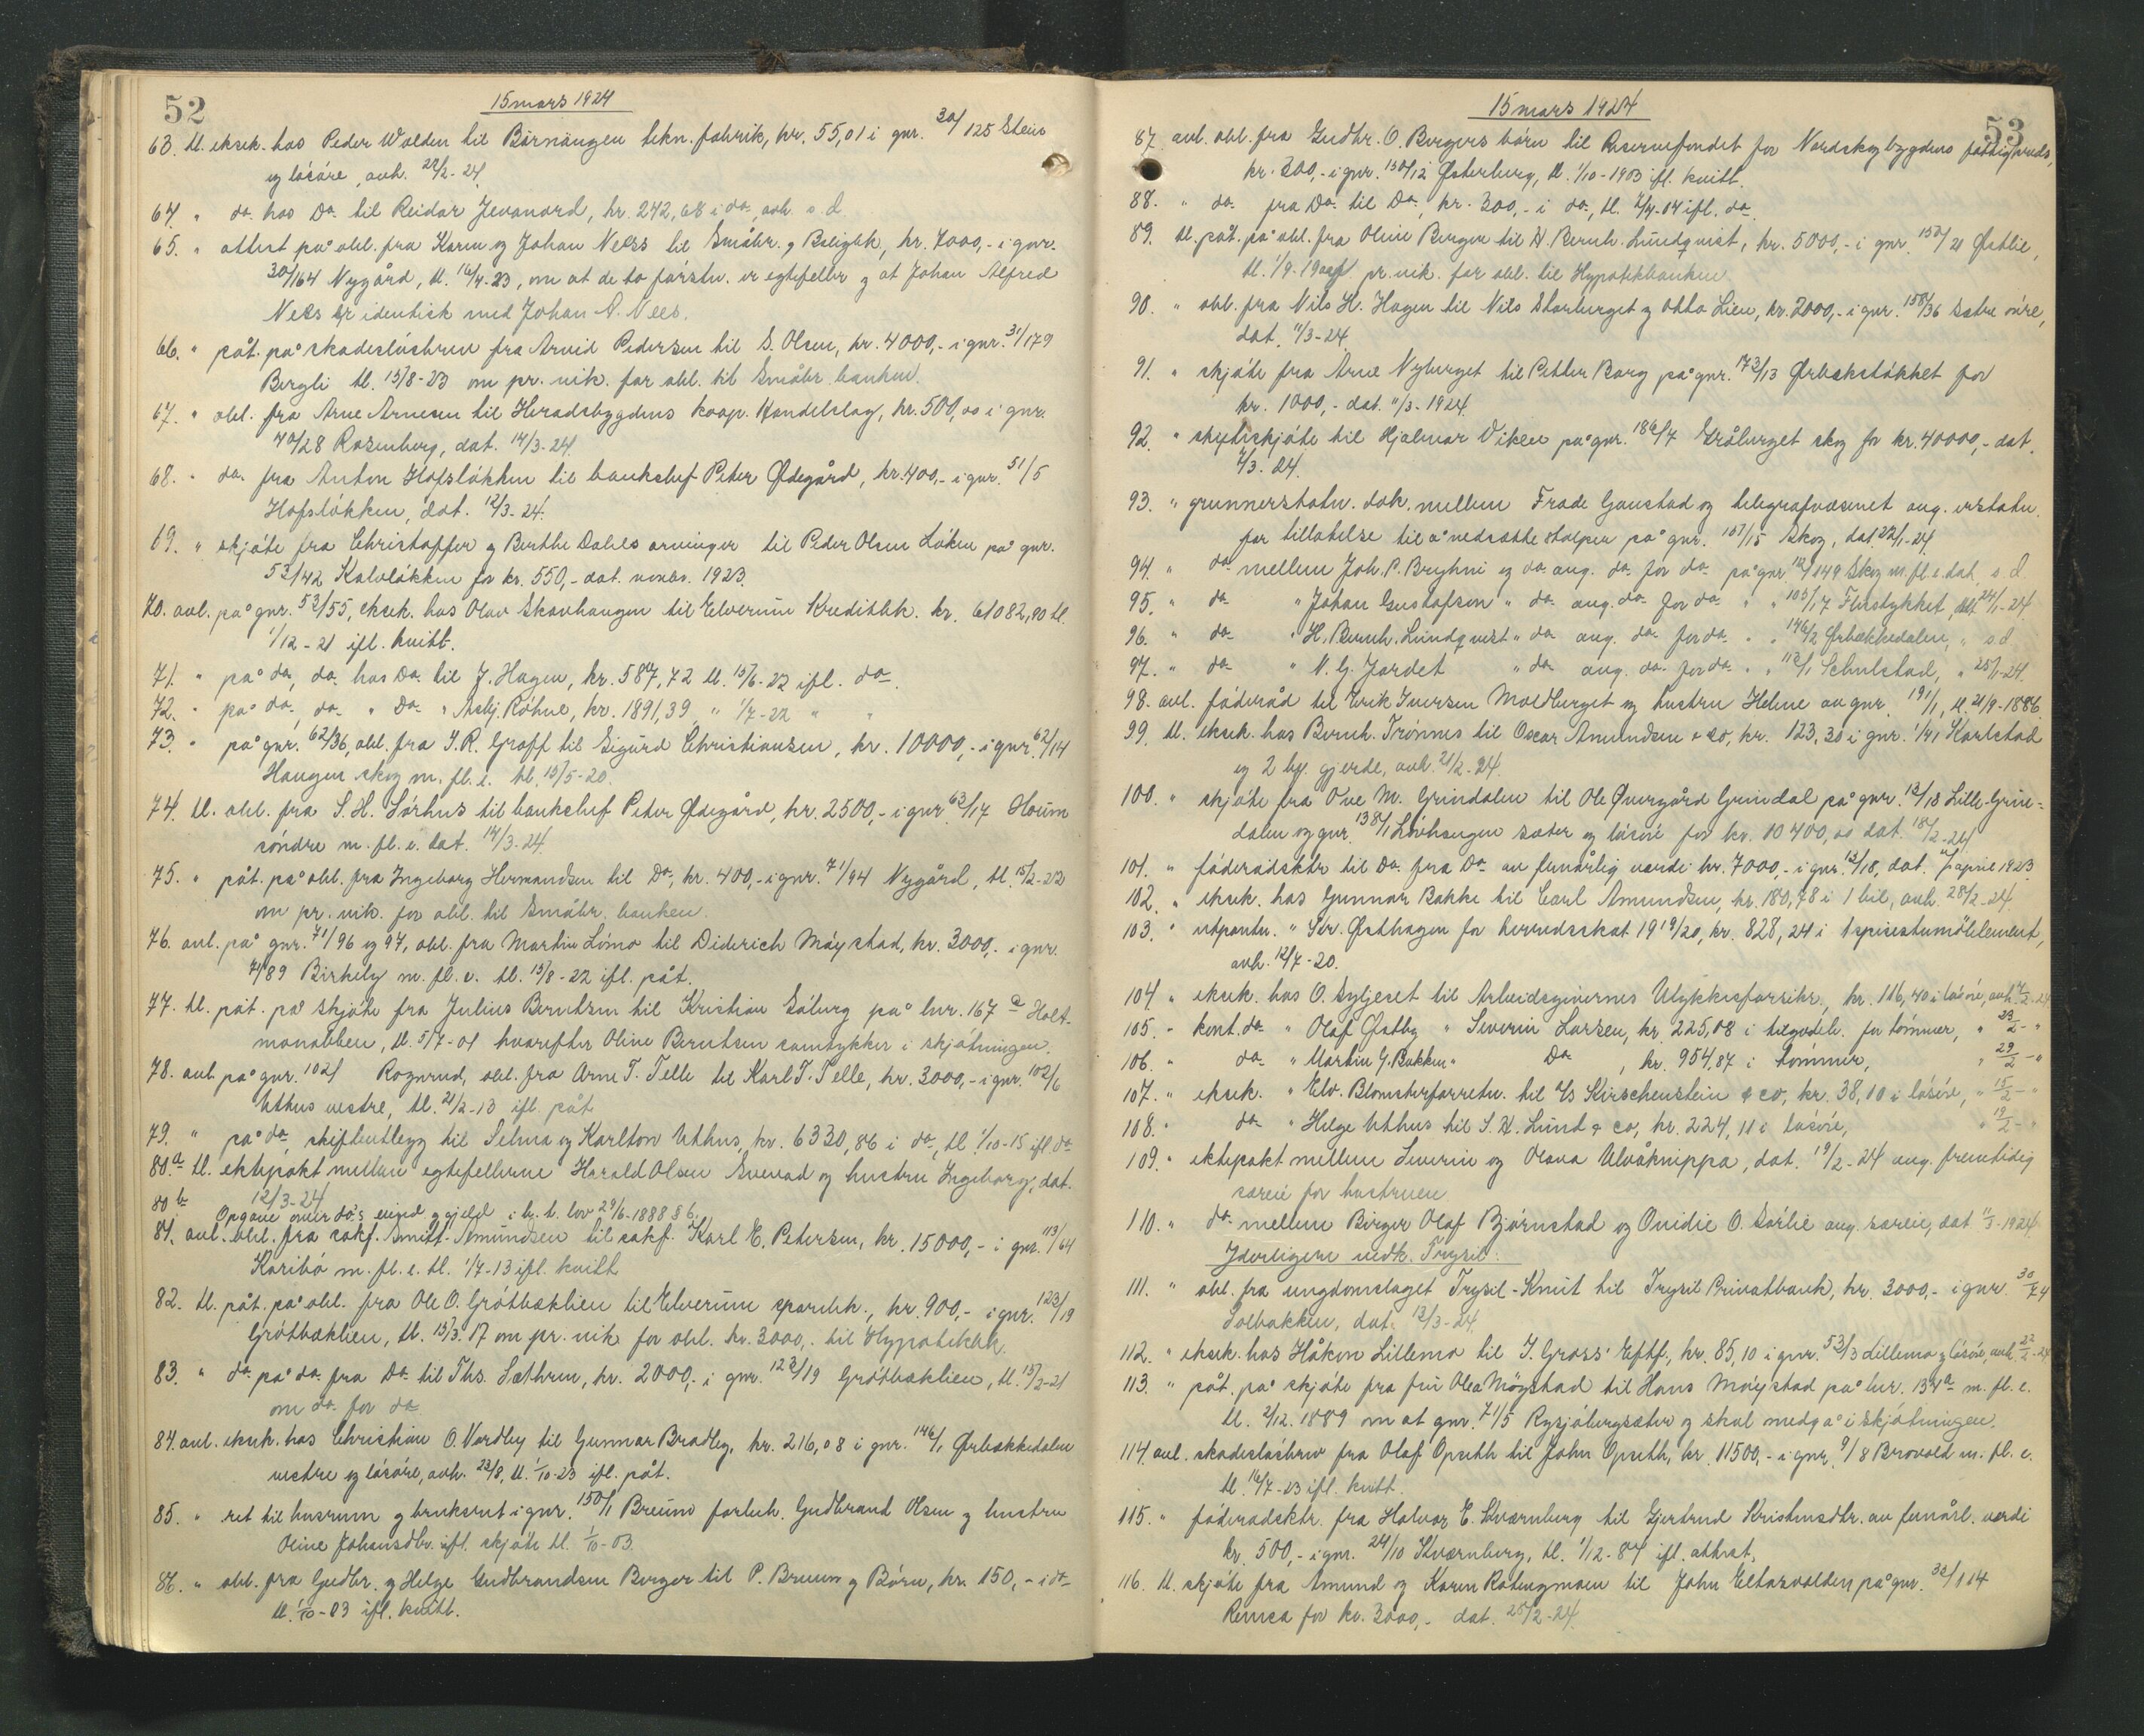 52
15 mars 1924
63. tl. eksek. hos Peder Wolden til Bärnängen tekn. fabrik, kr. 55,01 i gnr. 30/125 Stein
og løsøre, avh. 28/2-24.
64. " do. hos Do. til Reidar Jevanord, kr. 242,68 i do., avh. s. d.
65. " attest på obl. fra Karen og Johan Næss til Småbr. og Boligbk., kr. 7000,- i gnr.
30/164 Nygård, tl. 16/4-23, om at de to førstn. er egtefeller og at Johan Alfred
Næss er identisk med Johan A. Næss.
66. " påt. på skadesløsbrev fra Arvid Pedersen til S. Olsen, kr. 4000,- i gnr. 31/179
Bergli tl. 15/8-23 om pr. vik. for obl. til Småbr. banken.
67. " obl. fra Arne Arnesen til Heradsbygdens koop. Handelslag, kr. 500,00 i gnr.
40/28 Rosenberg, dat. 14/3-24.
68. " do. fra Anton Hofsløkken til banksjef Peter Ødegård, kr. 400,- i gnr. 51/5
Hofsløkken, dat. 12/3-24.
69. " skjøte fra Christoffer og Berthe Dahls arvinger til Peder Olsen Løken på gnr.
53/42 Kalvløkken for kr. 550,- dat. novbr. 1923.
70. avl. på gnr. 53/55, eksek. hos Olav Skavhaugen til Elverum Kreditbk. kr. 61082,90 tl.
1/12-21 ifl. kvitt.
71. " på do., do. hos Do. til J. Hagen, kr. 587,72 tl. 15/6-22 ifl. do.
72. " på do., do. " Do. " Asbj. Røhne, kr. 1891,39 " 1/7-22 " "
73. " på gnr. 62/36, obl. fra J. R. Graff til Sigurd Christiansen, kr. 10000,- i gnr. 62/14
Haugen skog m. fl. e. tl. 15/5-20.
74. tl. obl. fra S. H. Sørhus til banksjef Peter Ødegård, kr. 2500,- i gnr. 63/17 Horum
søndre m. fl. e. dat. 14/3-24.
75. " påt. på obl. fra Ingeborg Hermandsen til Do., kr. 400,- i gnr. 71/94 Nygård, tl. 15/2-22
om pr. vik. for obl. til Småbr. banken.
76. avl. på gnr. 71/96 og 97, obl. fra Martin Lömo til Diderich Møystad, kr. 3000,- i gnr.
71/89 Birkely m. fl. e. tl. 15/8-22 ifl. påt.
77. tl. påt. på skjøte fra Julius Berntsen til Kristian Søberg på lnr. 167 a Holt-
manabben, tl. 5/7-01 hvorefter Oline Berntsen samtykker i skjøtningen.
78. avl. på gnr. 102/ Rognrud, obl. fra Arne T. Telle til Karl T. Telle, kr. 3000,- i gnr. 102/6
Uthus vestre, tl. 21/2-13 ifl. påt.
79. " på do., skifteutlegg til Selma og Karlton Uthus, kr. 6330,86 i do., tl. 1/10-15 ifl. do.
80.a tl. ektepakt mellem egtefellerne Harald Olsen Svevad og hustru Ingeborg, dat.
12/3-24
80 b Opgave over do.'s eiend. og gjeld i h. t. lov 29/6-1888 § 6.
81. avl. obl. fra sakf. Smitt-Amundsen til sakf. Karl E. Petersen, kr. 15000,- i gnr. 113/64
Karibo m. fl. e. tl. 1/7-13 ifl. kvitt
82. tl. påt. på obl. fra Ole O. Grøtbæklien til Elverum sparebk., kr. 900,- i gnr. 123/19
Grøtbæklien, tl. 15/3-17 om pr. vik. for obl. kr. 3000,- til Hypotekbk.
83. " do. på do. fra Do. til Ths. Sæthren, kr. 2000,- i gnr. 123/19 Grøtbæklien, tl. 15/2-21
om do. for do.
84. avl. eksek. hos Christian O. Nordby til Gunnar Bradley, kr. 216,08 i gnr. 146/1 Ørbækkedalen
vestre og løsøre, avh. 23/8, tl. 1/10-23 ifl. påt.
85. " ret til husrum og bruksret i gnr. 150/1 Breum forbeh. Gudbrand Olsen og hustru
Oline Johansdtr. ifl. skjøte tl. 1/10-03.
86. " obl. fra Gudbr. og Helge Gudbrandsen Berger til P. Breum og Børn, kr. 150,- i do.
tl. 1/10-03 ifl. kvitt.
53
15 mars 1924
87. avl. obl. fra Gudbr. O. Bergers børn til Reservefondet for Nordskogbygdens
kr. 300,- i gnr. 150/12 Østerberg, tl. 1/10-1903 ifl. kvitt.
88. " do. fra Do. til Do., kr. 300,- i do., tl. 2/4-04 ifl. do.
89. tl. påt. på obl. fra Oline Berger til H. Bernh. Lundqvist, kr. 5000,- i gnr. 150/21 Østlie,
tl. 1/9- pr. vik. for obl. til Hypotekbanken
90. " obl. fra Nils H. Hagen til Nils Storberget og Otto Lien, kr. 2000,- i gnr. 158/36 Sætre øvre,
dat. 11/3-24.
91. " skjøte fra Arne Nyberget til Petter Borg på gnr. 173/13 Ørbekstøkket for
kr. 1000,- dat. 11/3-1924.
92. " skifteskjøte til Hjalmar Viken på gnr. 186/7 Gråberget skog for kr. 40000,- dat.
3-24.
93. " grunnerstatn. dok. mellem Frode Gaustad og telegrafvæsenet ang. erstatn.
for tillatelse til å nedsætte stolper på gnr. 107/15 Skog, dat. 22/1-24.
94. " do. mellem Joh. P. Bryhni og do. ang. do. for do. på gnr. 149 Skog m. fl. e. dat. s. d
95. " do. " Johan Gustafson " do. ang. do. for do. " " 103/17 Flerstykket, dat. 24/1-24
96. " do. " H. Bernh. Lundqvist " do. ang. do. for do. " " 146/2 Ørbækkedalen, " s d
97. " do. " N. G. Jordet " do. ang. do. for do. " " 112/1 Schulstad, " 25/1-24.
98. avl. føderåd til Erik Iversen Moldberget og hustru Helene av gnr. 191/1, tl. 21/9-1886.
99. tl. eksek. hos Bernh. Trønnes til Oscar Amundsen & co, kr. 123,30 i gnr. 1/41 Karlstad
og 2 bp. gjerde, avh. 21/2-24.
100. " skjøte fra Ove M. Grindalen til Ole Øvergård Grindal på gnr. 12/18 Lille-Grin-
dalen og gnr. 138/1 Løvhaugen sæter og løsøre for kr. 10400,00 dat. 18/2-24
101. " føderådsktr. til Do. fra Do. av femårlig verdi kr. 7000,- i gnr. 12/18, dat. april 1923
102. " eksek. hos Gunnar Bakke til Carl Amundsen, kr. 180,78 i 1 bil, avh. 28/2-24.
103. " utpantn. " Skr. Østhagen for herredsskat 1919/20, kr. 828,24 i 1 spisestumøblement,
avh. 12/7-20.
104. " eksek. hos O. Syljeset til Arbeidsgivernes Ulykkesforsikr., kr. 116,40 i løsøre, avh.
105. " kont. do. " Olaf Østby " Severin Larsen, kr. 225,08 i tilgodeh. for tømmer, " 29/2 - "
106. " do. " Martin G. Bakken " Do. , kr. 954,87 i tømmer, " 29/2 - "
107. " eksek. " Elv. Blomsterforretn. til A/s Kirschenstein & co, kr. 38,10 i løsøre, " 15/2 - "
108. " do. " Helge Uthus til S. H. Lund & co, kr. 224,11 i løsøre, " 19/2 - "
109. " ektepakt mellem Severin og Olava Ulvåknippa, dat. 19/2-24 ang. fremtidig
særeie for hustruen
110. " do. mellem Birger Olaf Bjørnstad og Ovidie O. Sørlie ang. særeie, dat 11/3-1924.
Yderligere vedk. Trysil.
111. " obl. fra ungdomslaget Trysil-Knut til Trysil Privatbank, kr. 3000,- i gnr. 30/74
Solbakken, dat. 12/3-24.
112. " eksek. hos Håkon Lillemo til J. Grøss' Eftf., kr. 85,10 i gnr. 53/3 Lillemo og løsøre, avh. 22/2-24
113. " påt. på skjøte fra fru Olea Møystad til Hans Møystad på lnr. 134a m. fl. e.
tl. 2/12. 1889 om at gnr. 71/5 Rysjøbergsæter og skal medgå i skjøtningen.
114. avl. skadesløsbrev fra Olaf Opseth til John Opseth, kr. 11500,- i gnr. 9/8 Brovold m. fl. e.
tl. 16/7-23 ifl. kvitt.
115. " føderådsktr. fra Halvor E. Kværnberg til Gjertrud Kristensdtr. av femårl. verdi
kr. 500,- i gnr. 24/10 Kværnberg, tl. 1/12-84 ifl. attest.
116. tl. skjøte fra Amund og Karen Rotnemoen til John Eltazvolden på gnr. 32/114
Remsa for kr. 3000,- dat. 25/2-24.